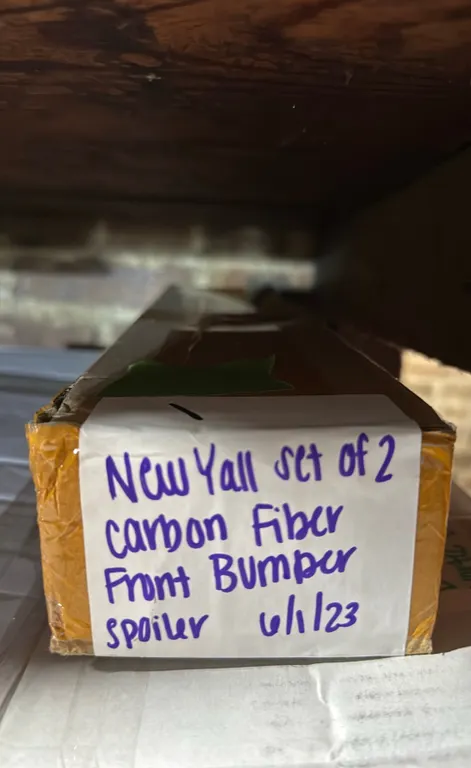 New Yall set of 2
carbon Fiber
Front Bumper
spoiler 6/1/23